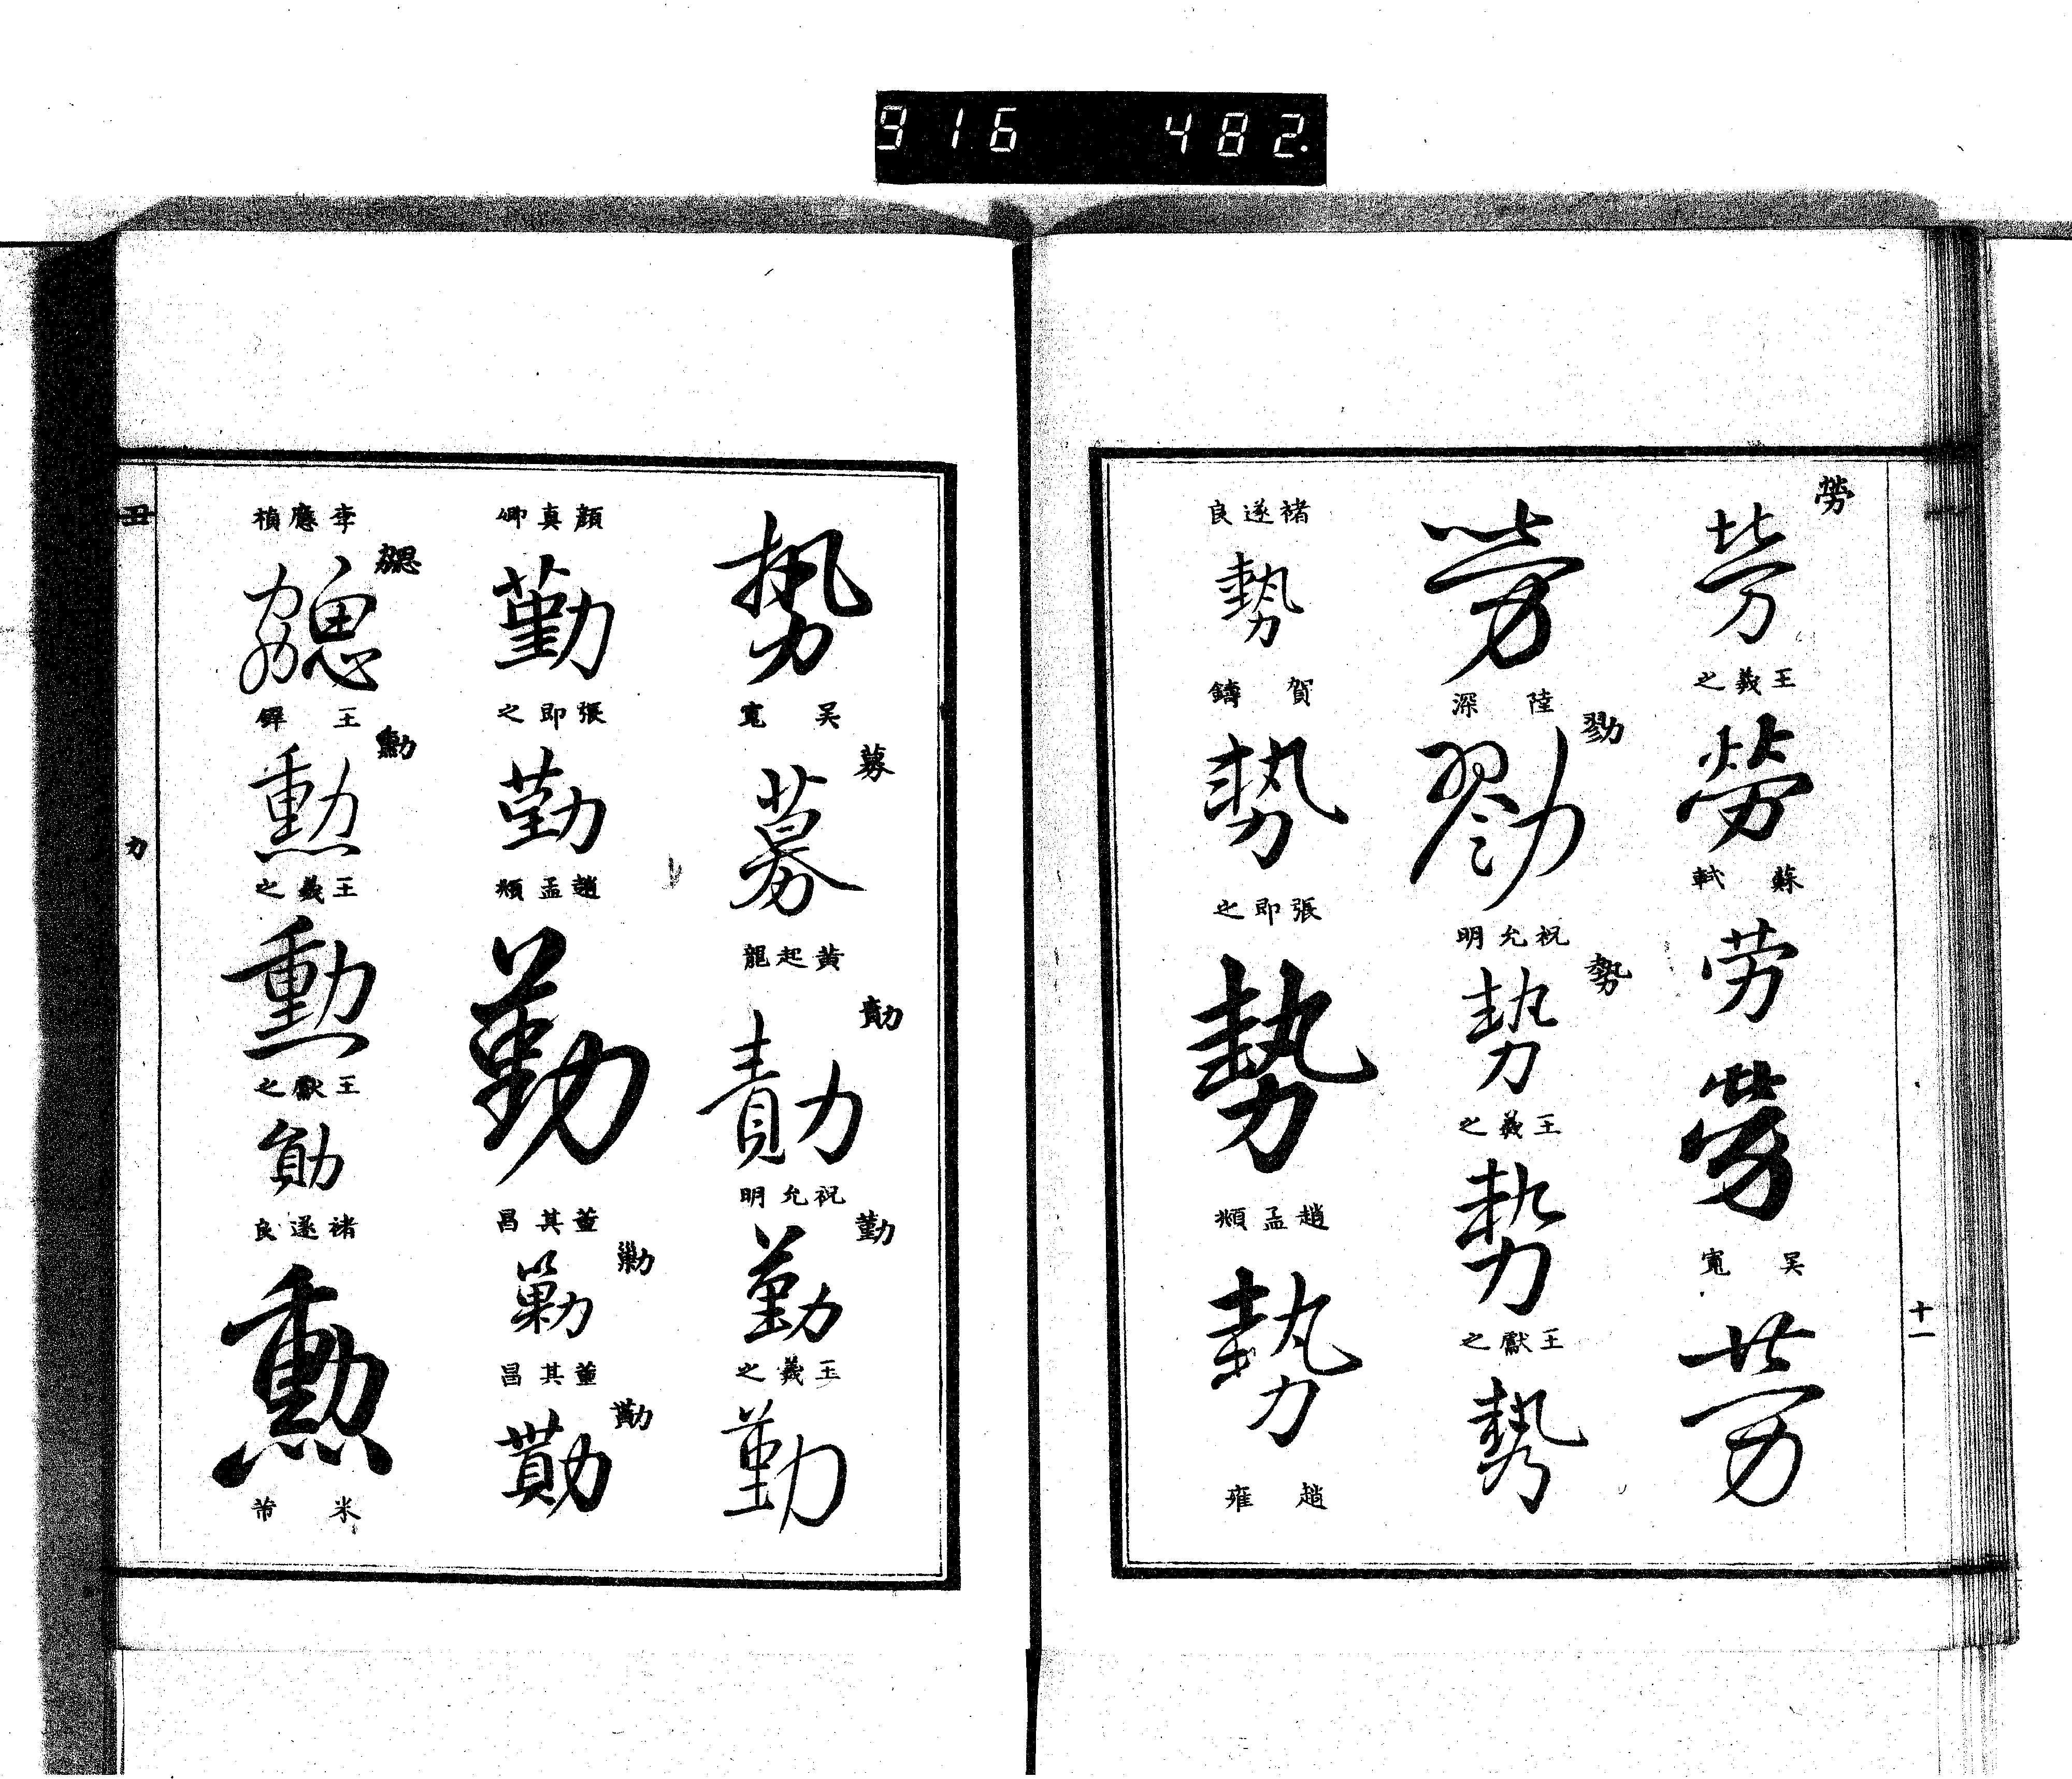 916 482.
勞
劳
王羲之
勞
蘇軾
劳
勞
吴寬
劳
十一
勞
陸深
勠
勠
祝允明
勢
勢
王羲之
勢
王獻之
勢
褚遂良
勢
賀鑄
勢
張即之
勢
趙孟頫
勢
趙雍
勢
吴寬
募
募
黄起龍
勣
勣
祝允明
勤
勤
王羲之
勤
顔真卿
勤
張即之
勤
趙孟頫
勤
董其昌
勦
勦
董其昌
勩
勩
李應楨
勰
勰
王鐸
勳
勳
王羲之
勳
王獻之
勛
褚遂良
勳
米芾
丑
力